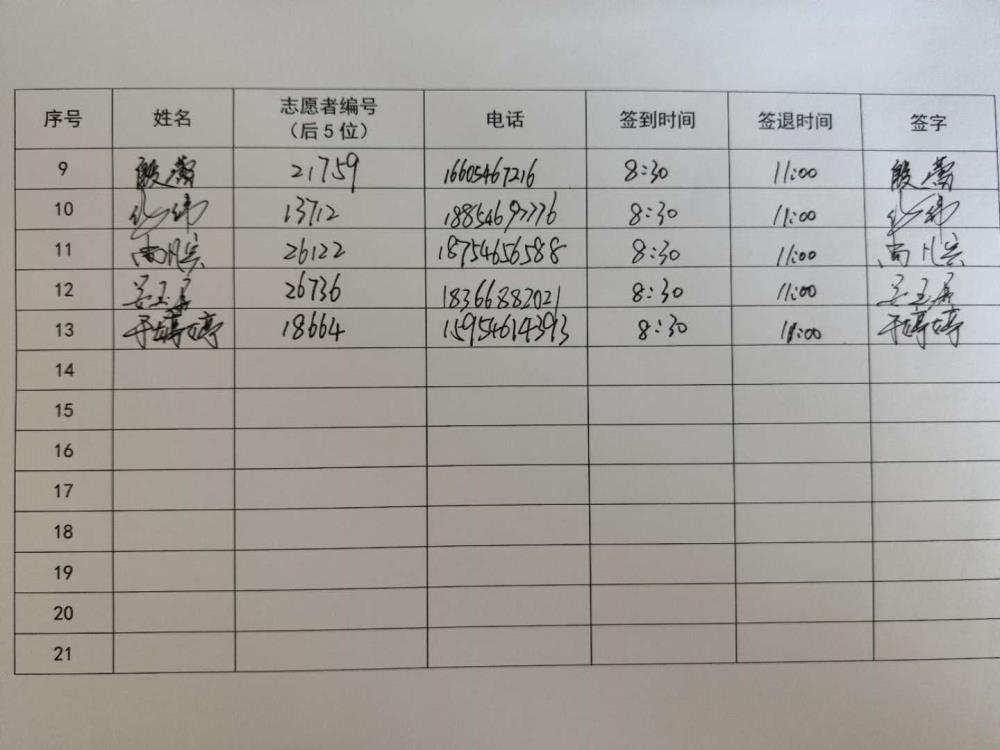 序号 姓名 志愿者编号（后5位） 电话 签到时间 签退时间 签字
9 殷蕾 21759 16605467216 8:30 11:00 殷蕾
10 13712 8:30 11:00
11 尚 26122 18754656588 8:30 11:00 尚
12 26736 18366882021 8:30 11:00
13 于婷婷 18664 15954614393 8:30 11:00 于婷婷
14
15
16
17
18
19
20
21